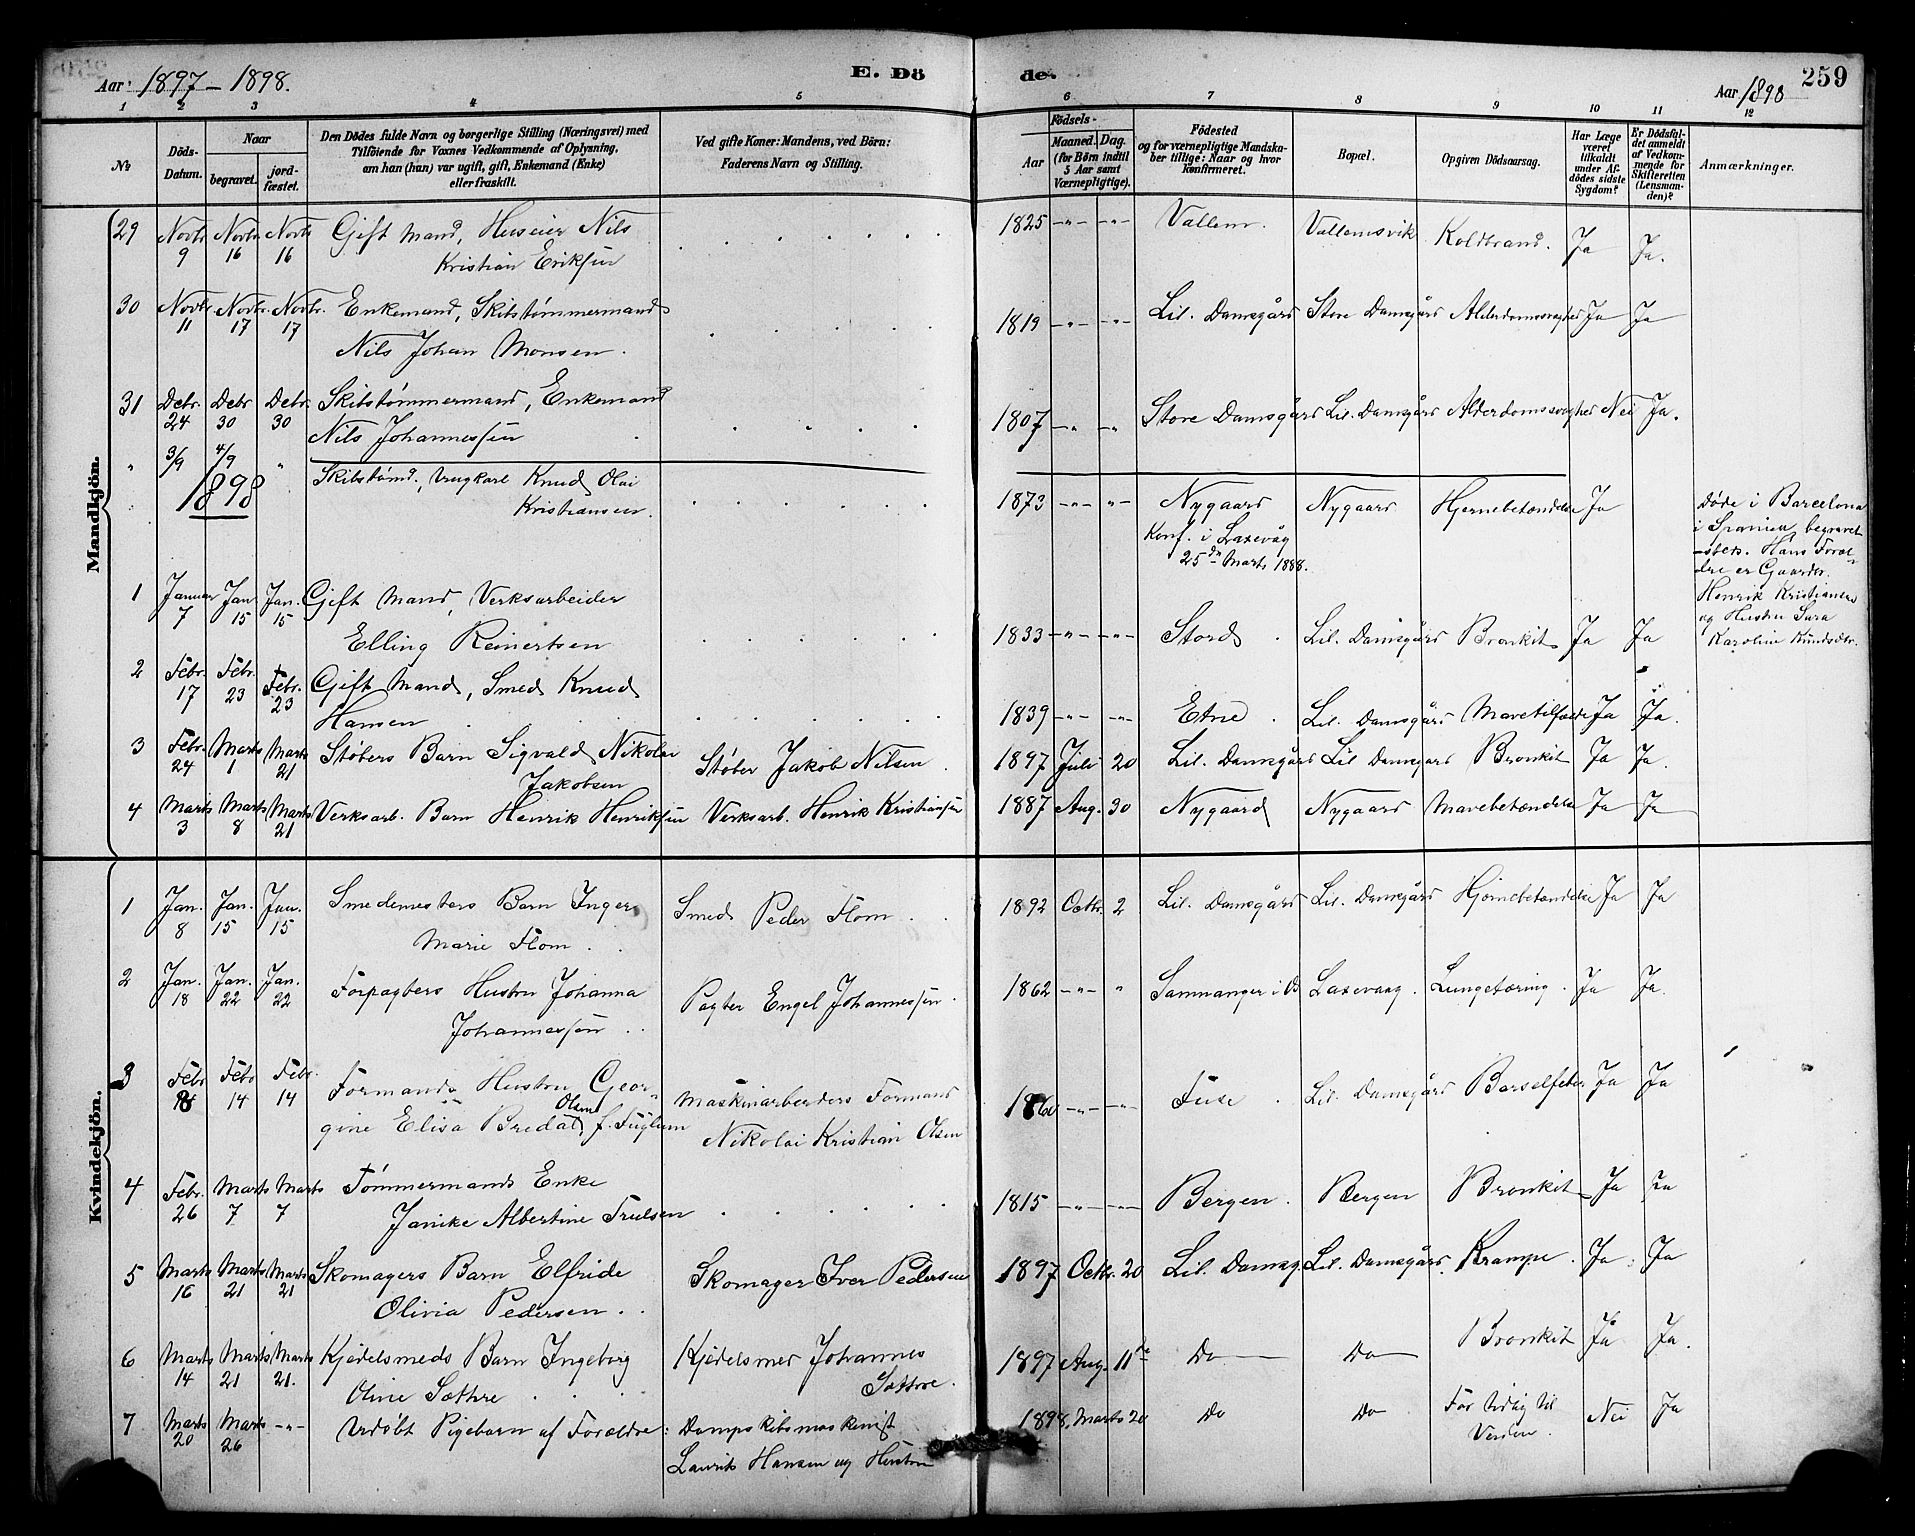 Aar 1897 – 1898.
E. Dö
de.
Aar 1898
259
1 2 3 4 5 6 7 8 9 10 11 12
No
Döds-Datum.
Naar
begravet.
jord-fæstet.
Den Dödes fulde Navn og borgerlige Stilling (Næringsvei) med
Tilföiende for Voxnes Vedkommende af Oplysning,
om han (hun) var ugift, gift, Enkemand (Enke)
eller fraskilt.
Ved gifte Koner: Mandens, ved Börn:
Faderens Navn og Stilling.
Födsels-
Aar
Maaned. Dag.
(for Börn indtil
5 Aar samt
Værnepligtige).
Födested
og for værnepligtige Mandska-
ber tillige: Naar og hvor
Konfirmeret.
Bopæl.
Opgiven Dödsaarsag.
Har Læge
været
tilkaldt
under Af-
dödes sidste
Sygdom?
Er Dödsfal-
det anmeldt
af Vedkom-
mende for
Skifteretten
(Lensman-
den)?
Anmærkninger.
Mandkjön.
29 Novbr. 9 Novbr. 16 Novbr. 16 Gift Mand, Huseier Nils
Kristian Eriksen 1825 –"– –"– Vallem. Vallemsvik Koldbrand. Ja Ja.
30 Novbr. 11 Novbr. 17 Novbr. 17 Enkemand, Skibstømmermand
Nils Johan Monsen. 1819 –"– –"– Lil. Damsgård Store Damsgård Alderdomssvaghed Ja Ja
31 Debr. 24 Debr 30 Debr. 30 Skibstømmermand, Enkemand
Nils Johannessen 1807 –"– –"– Store Damsgård Lil. Damsgård Alderdomssvaghed Nei Ja.
" 3/9 4/9 "
1898
Skibstømd., Ungkarl Knud Olai
Kristiansen. 1873 –"– "– Nygaard Nygaard Hjernebetændelse Ja
Konf. i Laxevåg
25de Marts 1888.
Døde i Barcelona
i Spanien, begravet
-steds. Hans Foræl-
dre er Gaardbr.
Henrik Kristiansen
og Hustru Sara
Karoline Knudsdtr.
1 Januar 7 Jan. 15 Jan. 15 Gift Mand, Verksarbeider
Elling Reinertsen 1833 –"– –"– Stord. Lil. Damsgård Bronkit Ja Ja
2 Febr. 17 Febr. 23 Febr. 23 Gift Mand, Smed Knud
Hansen 1839 –"– –"– Etne. Lil. Damsgård Mavetilfælde Ja Ja.
3 Febr. 24 Marts 1 Marts 21 Støbers Barn Sigvald Nikolai
Jakobsen Støber Jakob Nilsen. 1897 Juli 20 Lil. Damsgård Lil Damsgård Bronkit Ja Ja.
4 Marts 3 Marts 8 Marts 21 Verksarb. Barn Henrik Henriksen Verksarb. Henrik Kristiansen 1887 Aug. 30 Nygaard Nygaard Mavebetændelse Ja Ja
Kvindekjön.
1 Jan. 8 Jan. 15 Jan. 15 Smedemesters Barn Inger
Marie Flom. Smed Peder Flom. 1892 Octbr. 2 Lil. Damsgård Lil. Damsgård Hjernebetændelse Ja Ja
2 Jan. 18 Jan. 22 Jan. 22 Forpagters Hustru Johanna
Johannessen. Pagter Engel Johannessen. 1862 –"– " Samnanger i Laxevaag. Lungetæring. Ja Ja.
3 Febr Febr 14 Febr. 14 Formands Hustru Geor-
gine Elisa Bredal Olsen f. Fuglum Maskinarbeiders Formand
Nikolai Kristian Olsen 1860 –"– –"– Fuse. Lil. Damsgård Barselfeber Ja Ja
4 Febr. 26 Marts 7 Marts 7 Tømmermands Enke
Janike Albertine Trulsen 1815 –"– –"– Bergen. Bergen Bronkit Ja Ja
5 Marts 16 Marts 21 Marts 21 Skomagers Barn Elfride
Olivia Pedersen. Skomager Iver Pedersen 1897 Octbr. 20 Lil. Damsg. Lil. Damsgård. Krampe. Ja. Ja
6 Marts 14 Marts 21 Marts 21. Kjedelsmeds Barn Ingeborg
Oline Sæthre. Kjedelsmed Johannes
Sæthre. 1897 Aug. 11te Do Do Bronkit Ja Ja.
7 Marts 20 Marts 26 –"– Udøbt Pigebarn af Forældre: Dampskibsmaskinist
Laurits Hansen og Hustru 1898, Marts 20 Do Do For tidlig til
Verden. Nei Ja